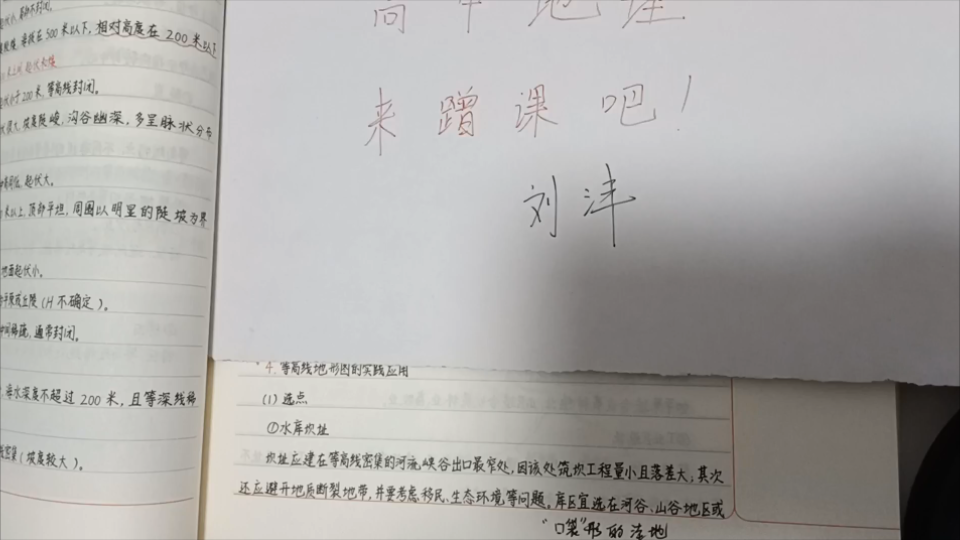 海拔在500米以下,相对高度在200米以下
起伏小于200米,等高线封闭。
坡度陡峻,沟谷幽深,多呈脉状分布
起伏大。
米以上,顶部平坦,周围以明显的陡坡为界
地面起伏小。
平原或丘陵(H不确定)。
通常封闭。
海水深度不超过200米,且等深线稀
(坡度较大)。
高中地理
来蹭课吧!
刘沣
4.等高线地形图的实践应用
(1)选点
①水库坝址
坝址应建在等高线密集的河流峡谷出口最窄处,因该处筑坝工程量小且落差大;其次
还应避开地质断裂地带,并要考虑移民、生态环境等问题。库区宜选在河谷、山谷地区或
"口袋"形的洼地